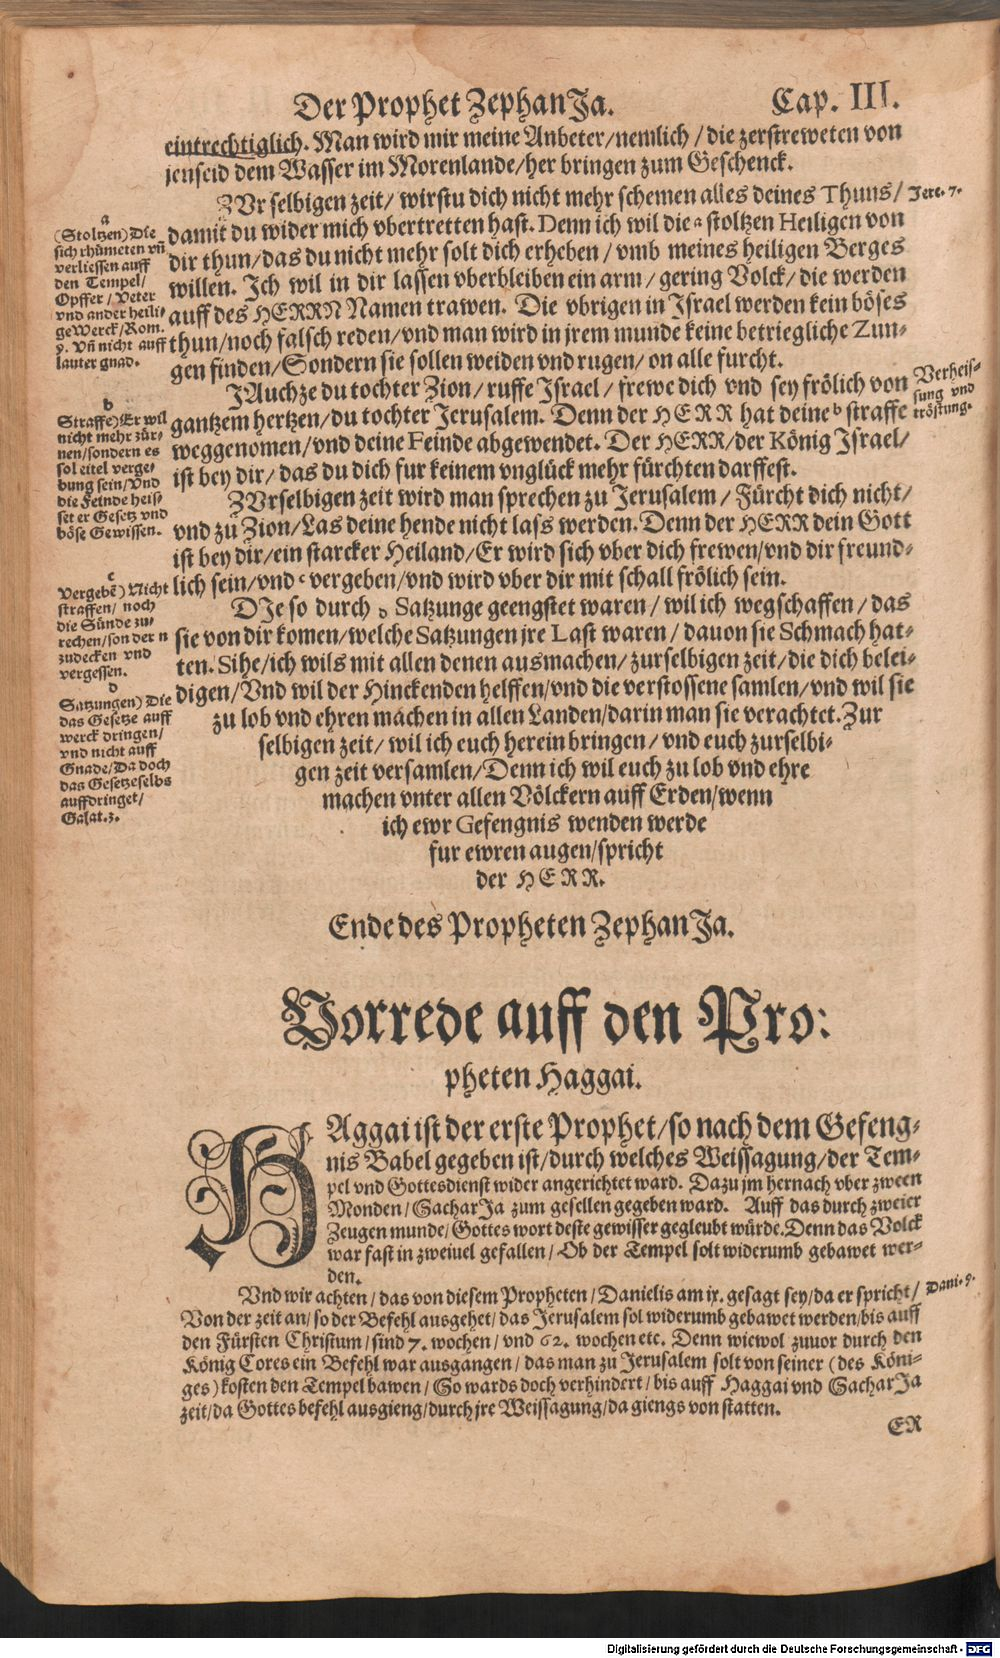 Der Prophet ZephanJa. Cap. III.
eintrechtiglich. Man wird mir meine Anbeter/nemlich/die zerstreweten von
jenseid dem Wasser im Morenlande/her bringen zum Geschenck.
ZVr selbigen zeit/ wirstu dich nicht mehr schemen alles deines Thuns/
Jere. 7.
damit du wider mich vbertretten hast. Denn ich wil die a stoltzen Heiligen von
dir thun/das du nicht mehr solt dich erheben/ vmb meines heiligen Berges
willen. Ich wil in dir lassen vberbleiben ein arm/ gering Volck/ die werden
auff des HERRN Namen trawen. Die vbrigen in Israel werden kein böses
thun/noch falsch reden/vnd man wird in jrem munde keine betriegliche Zun-
gen finden/Sondern sie sollen weiden vnd rugen/ on alle furcht.
a
(Stoltzen) Die
sich rhümeten vn̄
verliessen auff
den Tempel/
Opffer/Veter
vnd ander heili-
ge Werck/Rom.
9. Vn̄ nicht auff
lauter gnad.
JAuchze du tochter Zion/ ruffe Israel/ frewe dich vnd sey frölich von
gantzem hertzen/du tochter Jerusalem. Denn der HERR hat deine b straffe
weggenomen/vnd deine Feinde abgewendet. Der HERR/der König Israel/
ist bey dir/ das du dich fur keinem vnglück mehr fürchten darffest.
Verheis-
sung vnd
tröstung.
b
Straffe) Er wil
nicht mehr zür-
nen/sondern es
sol eitel verge-
bung sein/Vnd
die Feinde heis-
set er Gesetz vnd
böse Gewissen.
ZVrselbigen zeit wird man sprechen zu Jerusalem/ Fürcht dich nicht/
vnd zu Zion/Las deine hende nicht lass werden. Denn der HERR dein Gott
ist bey dir/ein starcker Heiland/Er wird sich vber dich frewen/vnd dir freund-
lich sein/vnd c vergeben/vnd wird vber dir mit schall frölich sein.
c
Vergebē) Nicht
straffen/ noch
die Sünde zu-
rechen/sondern
zudecken vnd
vergessen.
DJe so durch d Satzunge geengstet waren/ wil ich wegschaffen/ das
sie von dir komen/welche Satzungen jre Last waren/ dauon sie Schmach hat-
ten. Sihe/ich wils mit allen denen ausmachen/zurselbigen zeit/die dich belei-
digen/Vnd wil der Hinckenden helffen/vnd die verstossene samlen/vnd wil sie
zu lob vnd ehren machen in allen Landen/darin man sie verachtet. Zur
selbigen zeit/ wil ich euch herein bringen/ vnd euch zurselbi-
gen zeit versamlen/Denn ich wil euch zu lob vnd ehre
machen vnter allen Völckern auff Erden/wenn
ich ewr Gefengnis wenden werde
fur ewren augen/spricht
der HERR.
d
Satzungen) Die
das Gesetze auff
werck dringen/
vnd nicht auff
Gnade/Da doch
das Gesetze selbs
auffdringet/
Galat.3.
Ende des Propheten ZephanJa.
Vorrede auff den Pro-
pheten Haggai.
HAggai ist der erste Prophet/so nach dem Gefeng-
nis Babel gegeben ist/durch welches Weissagung/der Tem-
pel vnd Gottesdienst wider angerichtet ward. Dazu jm hernach vber zween
Monden/SacharJa zum gesellen gegeben ward. Auff das durch zweier
Zeugen munde/Gottes wort deste gewisser gegleubt würde. Denn das Volck
war fast in zweiuel gefallen/ Ob der Tempel solt widerumb gebawet wer-
den.
Vnd wir achten/das von diesem Propheten/Danielis am ix. gesagt sey/da er spricht/
Dani. 9.
Von der zeit an/so der Befehl ausgehet/das Jerusalem sol widerumb gebawet werden/bis auff
den Fürsten Christum/sind 7. wochen/vnd 62. wochen etc. Denn wiewol zuuor durch den
König Cores ein Befehl war ausgangen/das man zu Jerusalem solt von seiner (des Köni-
ges) kosten den Tempel bawen/So wards doch verhindert/bis auff Haggai vnd SacharJa
zeit/da Gottes befehl ausgieng/durch jre Weissagung/da giengs von statten.
ER
Digitalisierung gefördert durch die Deutsche Forschungsgemeinschaft - DFG